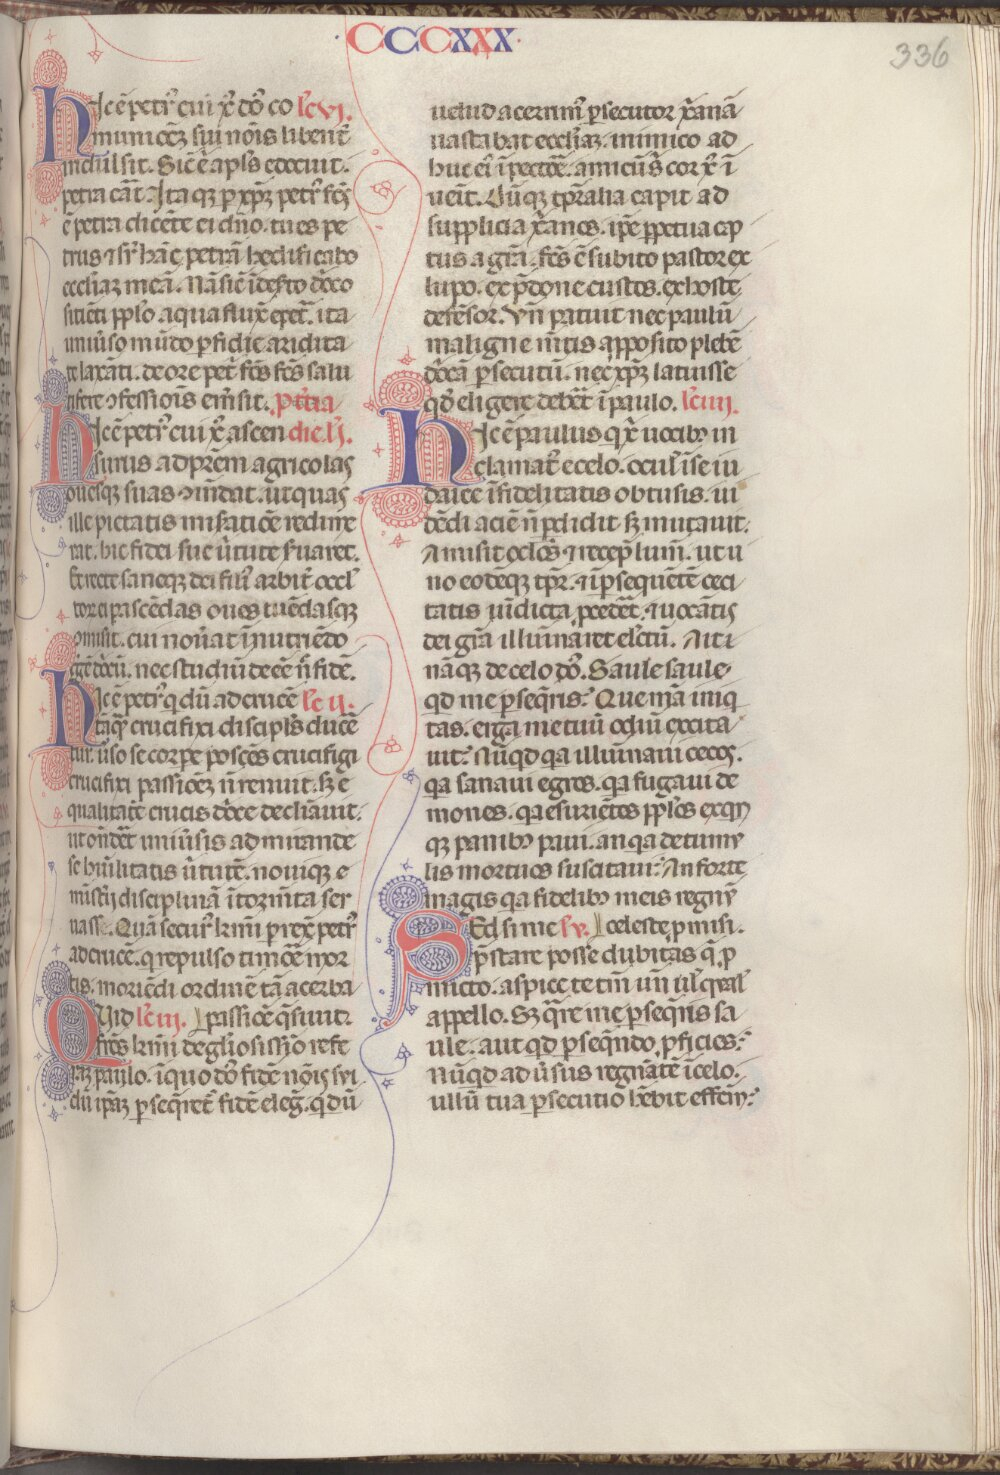 CCCXXX
336
Hic ē petr᷒ cui xp̄c dn̄s co lc̄ vi.
munionez sui nōis libent̄
indulsit. Sic ē apl̄s
petra
ē petra dicēte ei dn̄o. tu es pe
trus ⁊ sr̄ hāc petrā hedificabo
eccl̄iaz meā. Nā sic ī deserto dn̄o
sitiēti pplo aqua fluxit
uniūso mūdo perfidie aridita
te laxāti. de ore pet᷒ fōs salu
tifere ꝯfessiōis em̄sit. Pt̄cia
Hic ē petr᷒ cui xp̄c ascen die. lc̄ i.
surus ad prēm agricolas
ouesqꝫ suas ꝯm̄dat. ut quas
ille pietatis miseratiōe redime
rat. hic fidei sue ūtute ſuaret.
Et recte saneqꝫ dei filii arbit᷒
pascēdas oues tuēdasqꝫ
ꝯmisit. cui nouat ī nutriēdo
nec studiū deēe n̄ fidē.
Hic ē petr᷒ q dū ad crucē lc̄ ii.
crucifixi discipl̄s ducē
tur. ūso se corpe poscēs crucifigi
crucifixi passionez n̄ renuit. sz e
qualitatē crucis dōce decliauit.
ut ondēt uniūsis admirande
se hūilitatis ūtutē. nouiqꝫ e
misterii disciplinā ī tormīta ser
uasse. Quā secur᷒ kr̄mi p rexē petr᷒
ad crucē. q repulso timoē mor
tis. moriēdi ordinē tā acerba
Quid lc̄ iii. passiōe q̄siuit.
fr̄es kr̄mi de gl̄iosissimo refe
rā paulo. ī quo dn̄s fidē nōis sui
dū ipaz pseq̄ret᷒ fidē eleḡ. q dū
uelud acerrim᷒ psecutor xp̄ianā
uastabat eccl̄iaz. inimico ad
huc ei᷒ ī pectoē. amicūs cor xp̄c ī
ueīt. Cūqꝫ tpr̄alia capit ad
supplicia xp̄ianos. ipe ppetua cap
tus a gr̄a. fc̄s ē subito pastor ex
lupo. ex p̄done custos. ex hoste
defēsor. Vn̄ patuit nec paulū
maligne mētis apposito plebē
dn̄icā psecutū. nec xp̄z latuisse
qd̄ eligere debēt ī paulo. lc̄ iiii.
Hic ē paulus q xp̄i uocibꝫ in
clamat᷒ e celo. ocul᷒ ise iu
daice īfidelitatis obtusis. ui
dēdi aciē n̄ pdidit sz mutauit.
Amisit oclo̅s ⁊ recep̄ lum̄. ut u
no eodēqꝫ tpr̄. ⁊ īpsequētē ceci
tatis uīdicta pcedēt. ⁊ uocātis
dei gr̄a illuīaret elc̄tū. Aiti
nāqꝫ de celo dn̄s. Saule saule
qd me pseq̄ris? Que mā iniq
tas. erga me tuū odiū excita
uit? Nūqd qa illuīnaui cecos.
qa sanaui egros. qa fugaui de
mones. qa esuriētes pplo̅s ex
qꝫ panibꝫ paui. an qa de tumu
lis mortuos suscitaui? An forte
magis qa fidelibꝫ meis regnū
Sed si me lc̄ v. celeste pmisi.
p̄stare posse dubitas q̄ p
micto. aspice te tm̄ un̄ uel qual᷒
appello. Sz q̄re me pseq̄ris sa
ule. aut qd pseq̄ndo pficies?
Nūqd ad ūsus regnātē ī celo.
ullū tua psecutio hēbit effcūm?